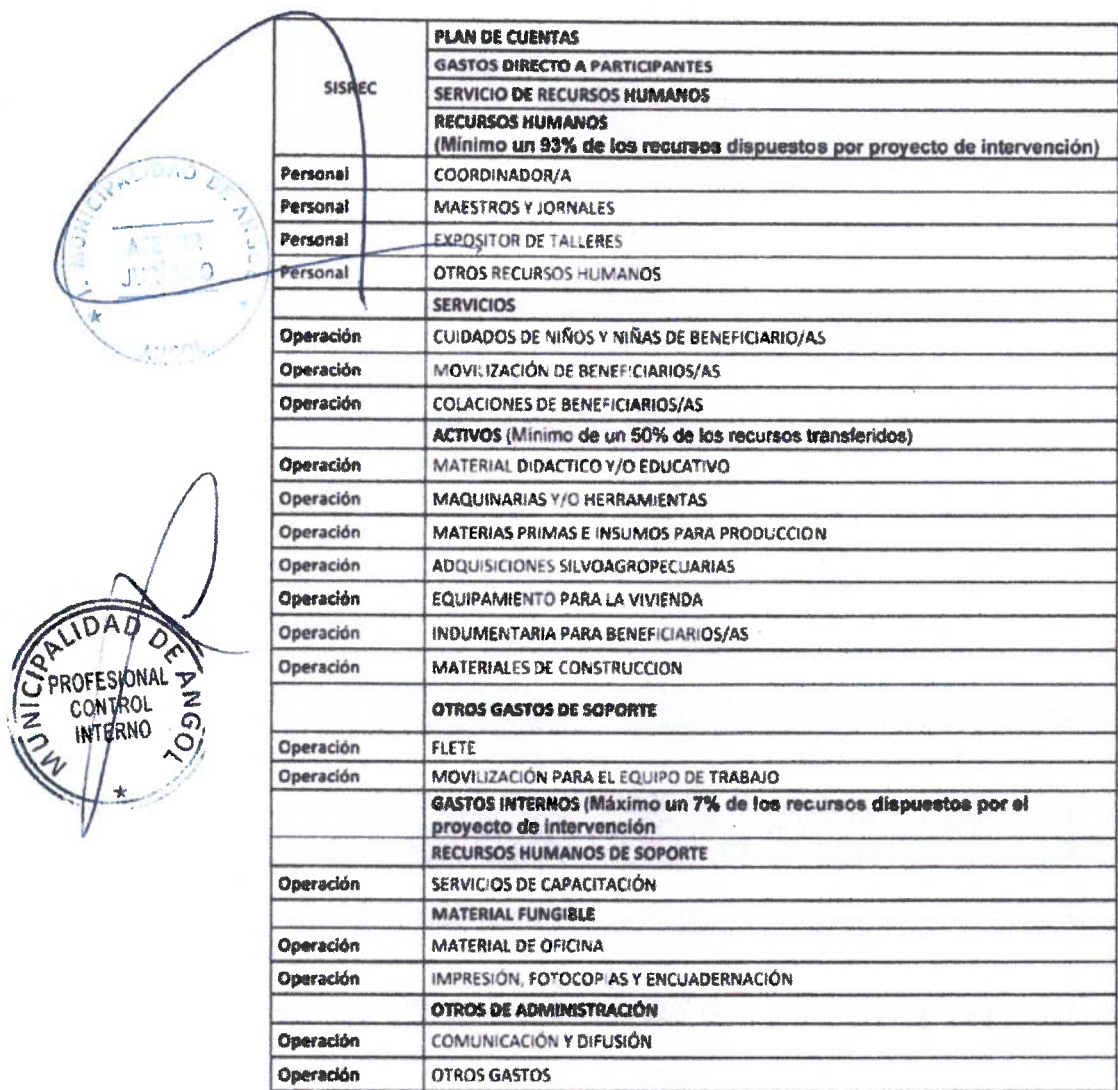 PLAN DE CUENTAS
GASTOS DIRECTO A PARTICIPANTES
SISREC
SERVICIO DE RECURSOS HUMANOS
RECURSOS HUMANOS
(Mínimo un 93% de los recursos dispuestos por proyecto de intervención)
Personal COORDINADOR/A
Personal MAESTROS Y JORNALES
Personal EXPOSITOR DE TALLERES
Personal OTROS RECURSOS HUMANOS
SERVICIOS
Operación CUIDADOS DE NIÑOS Y NIÑAS DE BENEFICIARIO/AS
Operación MOVILIZACIÓN DE BENEFICIARIOS/AS
Operación COLACIONES DE BENEFICIARIOS/AS
ACTIVOS (Mínimo de un 50% de los recursos transferidos)
Operación MATERIAL DIDACTICO Y/O EDUCATIVO
Operación MAQUINARIAS Y/O HERRAMIENTAS
Operación MATERIAS PRIMAS E INSUMOS PARA PRODUCCION
Operación ADQUISICIONES SILVOAGROPECUARIAS
Operación EQUIPAMIENTO PARA LA VIVIENDA
Operación INDUMENTARIA PARA BENEFICIARIOS/AS
Operación MATERIALES DE CONSTRUCCION
OTROS GASTOS DE SOPORTE
Operación FLETE
Operación MOVILIZACIÓN PARA EL EQUIPO DE TRABAJO
GASTOS INTERNOS (Máximo un 7% de los recursos dispuestos por el
proyecto de intervención
RECURSOS HUMANOS DE SOPORTE
Operación SERVICIOS DE CAPACITACIÓN
MATERIAL FUNGIBLE
Operación MATERIAL DE OFICINA
Operación IMPRESIÓN, FOTOCOPIAS Y ENCUADERNACIÓN
OTROS DE ADMINISTRACIÓN
Operación COMUNICACIÓN Y DIFUSIÓN
Operación OTROS GASTOS
I. MUNICIPALIDAD DE ANGOL
ASESOR
JURIDICO
ANGOL
MUNICIPALIDAD DE ANGOL
PROFESIONAL
CONTROL
INTERNO